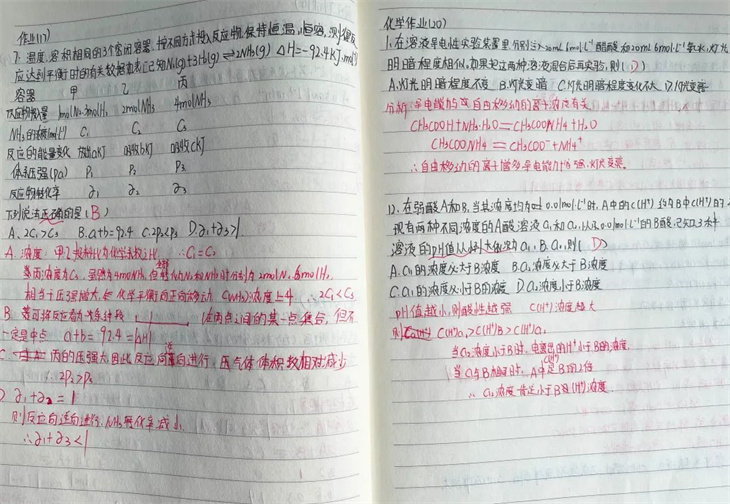 作业(17)
7. 温度、容积相同的3个密闭容器,按不同方式投入反应物,保持恒温、恒容,测得反
应达到平衡时的有关数据如表(已知N₂(g)+3H₂(g)⇌2NH₃(g) ΔH=-92.4kJ·mol
容器 甲 乙 丙
反应物投入量 1molN₂、3molH₂ 2molNH₃ 4molNH₃
NH₃的浓度(mol/L) C₁ C₂ C₃
反应的能量变化 放出akJ 吸收bKJ 吸收ckJ
体系压强(pa) P₁ P₂ P₃
反应物转化率 α₁ α₂ α₃
下列说法正确的是(B)
A. 2C₁>C₃ B. a+b=92.4 C. 2P₂<P₃ D. α₁+α₃>1
A. 浓度: 甲乙
∴C₁=C₂
∴2C₁<C₃
B.
在两点之间的某一点集合,但不
一定是中点 a+b=92.4=|ΔH|
丙的压强大,因此反应向 进行,压气体体积数相对减少
∴2P₂>P₃
D α₁+α₂=1
则反应向逆向进行,NH₃转化率减小
∴α₁+α₃<1
化学作业(20)
1. 在溶液导电性实验装置里分别注入20mL 6mol·L⁻¹醋酸和20mL 6mol·L⁻¹氨水,灯光
明暗程度相似,如果把这两种溶液混合后再实验,则(D)
A. 灯光明暗程度不变 B. 灯光变暗 C. 灯光明暗程度变化不大 D. 灯光变亮
分析: 导电能力与自由移动的离子浓度有关
CH₃COOH+NH₃·H₂O=CH₃COONH₄+H₂O
CH₃COONH₄=CH₃COO⁻+NH₄⁺
∴自由移动的离子增多导电能力增强,灯变亮。
12. 在弱酸A和B,当其浓度均为 0.01mol·L⁻¹时,A中的C(H⁺)约为B中C(H⁺)的
现有两种不同浓度的A酸溶液a₁和a₂,以及0.01mol·L⁻¹的B酸,已知
溶液的pH值从小到大依次为a₁、B、a₂,则(D)
A. a₁的浓度必大于B浓度 B. a₂浓度必大于B浓度
C. a₁的浓度必小于B的浓度 D. a₂浓度小于B浓度
pH值越小,则酸性越强 C(H⁺)浓度越大
则 C(H⁺)a₁>C(H⁺)B>C(H⁺)a₂
当a₂浓度小于B时,电离出的H⁺小于B的浓度
当a₂与B相时,A中 是B的2倍
∴a₂浓度肯定小于B的(H⁺)浓度